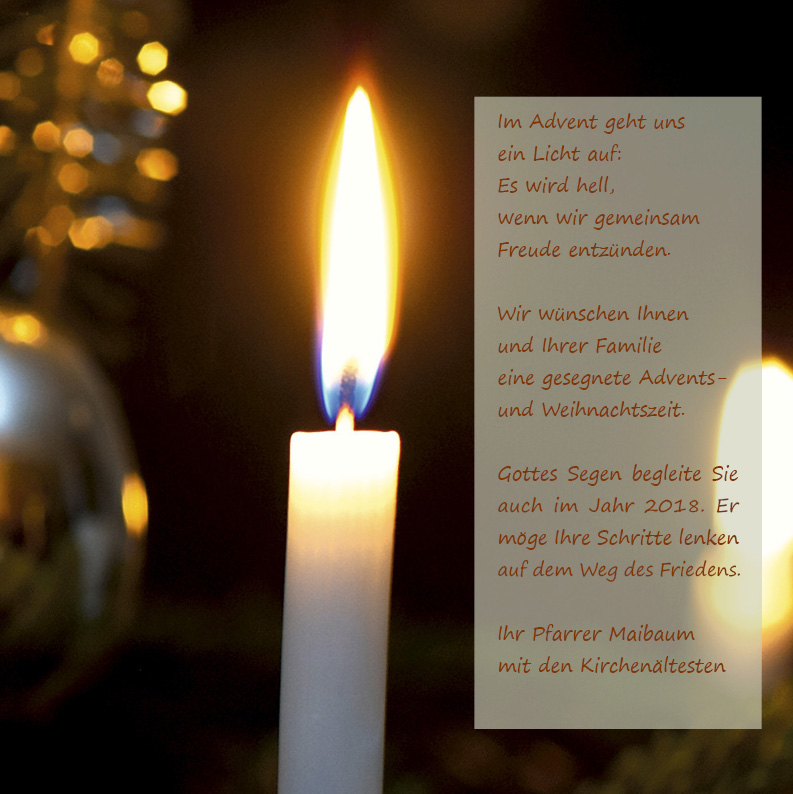 Im Advent geht uns
ein Licht auf:
Es wird hell,
wenn wir gemeinsam
Freude entzünden.
Wir wünschen Ihnen
und Ihrer Familie
eine gesegnete Advents-
und Weihnachtszeit.
Gottes Segen begleite Sie
auch im Jahr 2018. Er
möge Ihre Schritte lenken
auf dem Weg des Friedens.
Ihr Pfarrer Maibaum
mit den Kirchenältesten